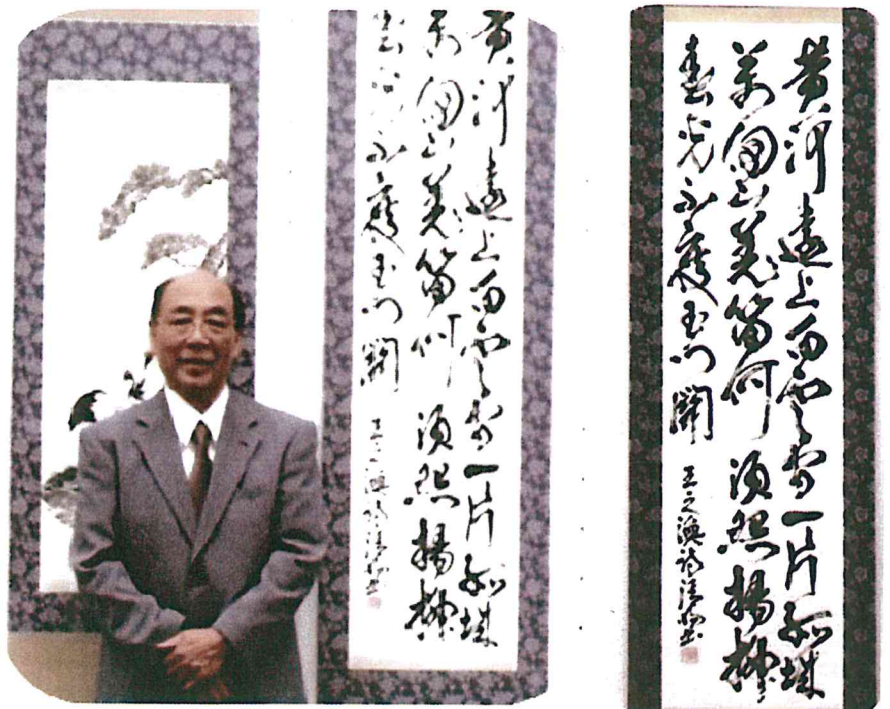 黄河遠上白雲間一片孤城
萬仞山羌笛何須怨楊柳
春光不度玉門關
王之渙詩書
黄河遠上白雲間一片孤城
萬仞山羌笛何須怨楊柳
春光不度玉門關
王之渙詩書